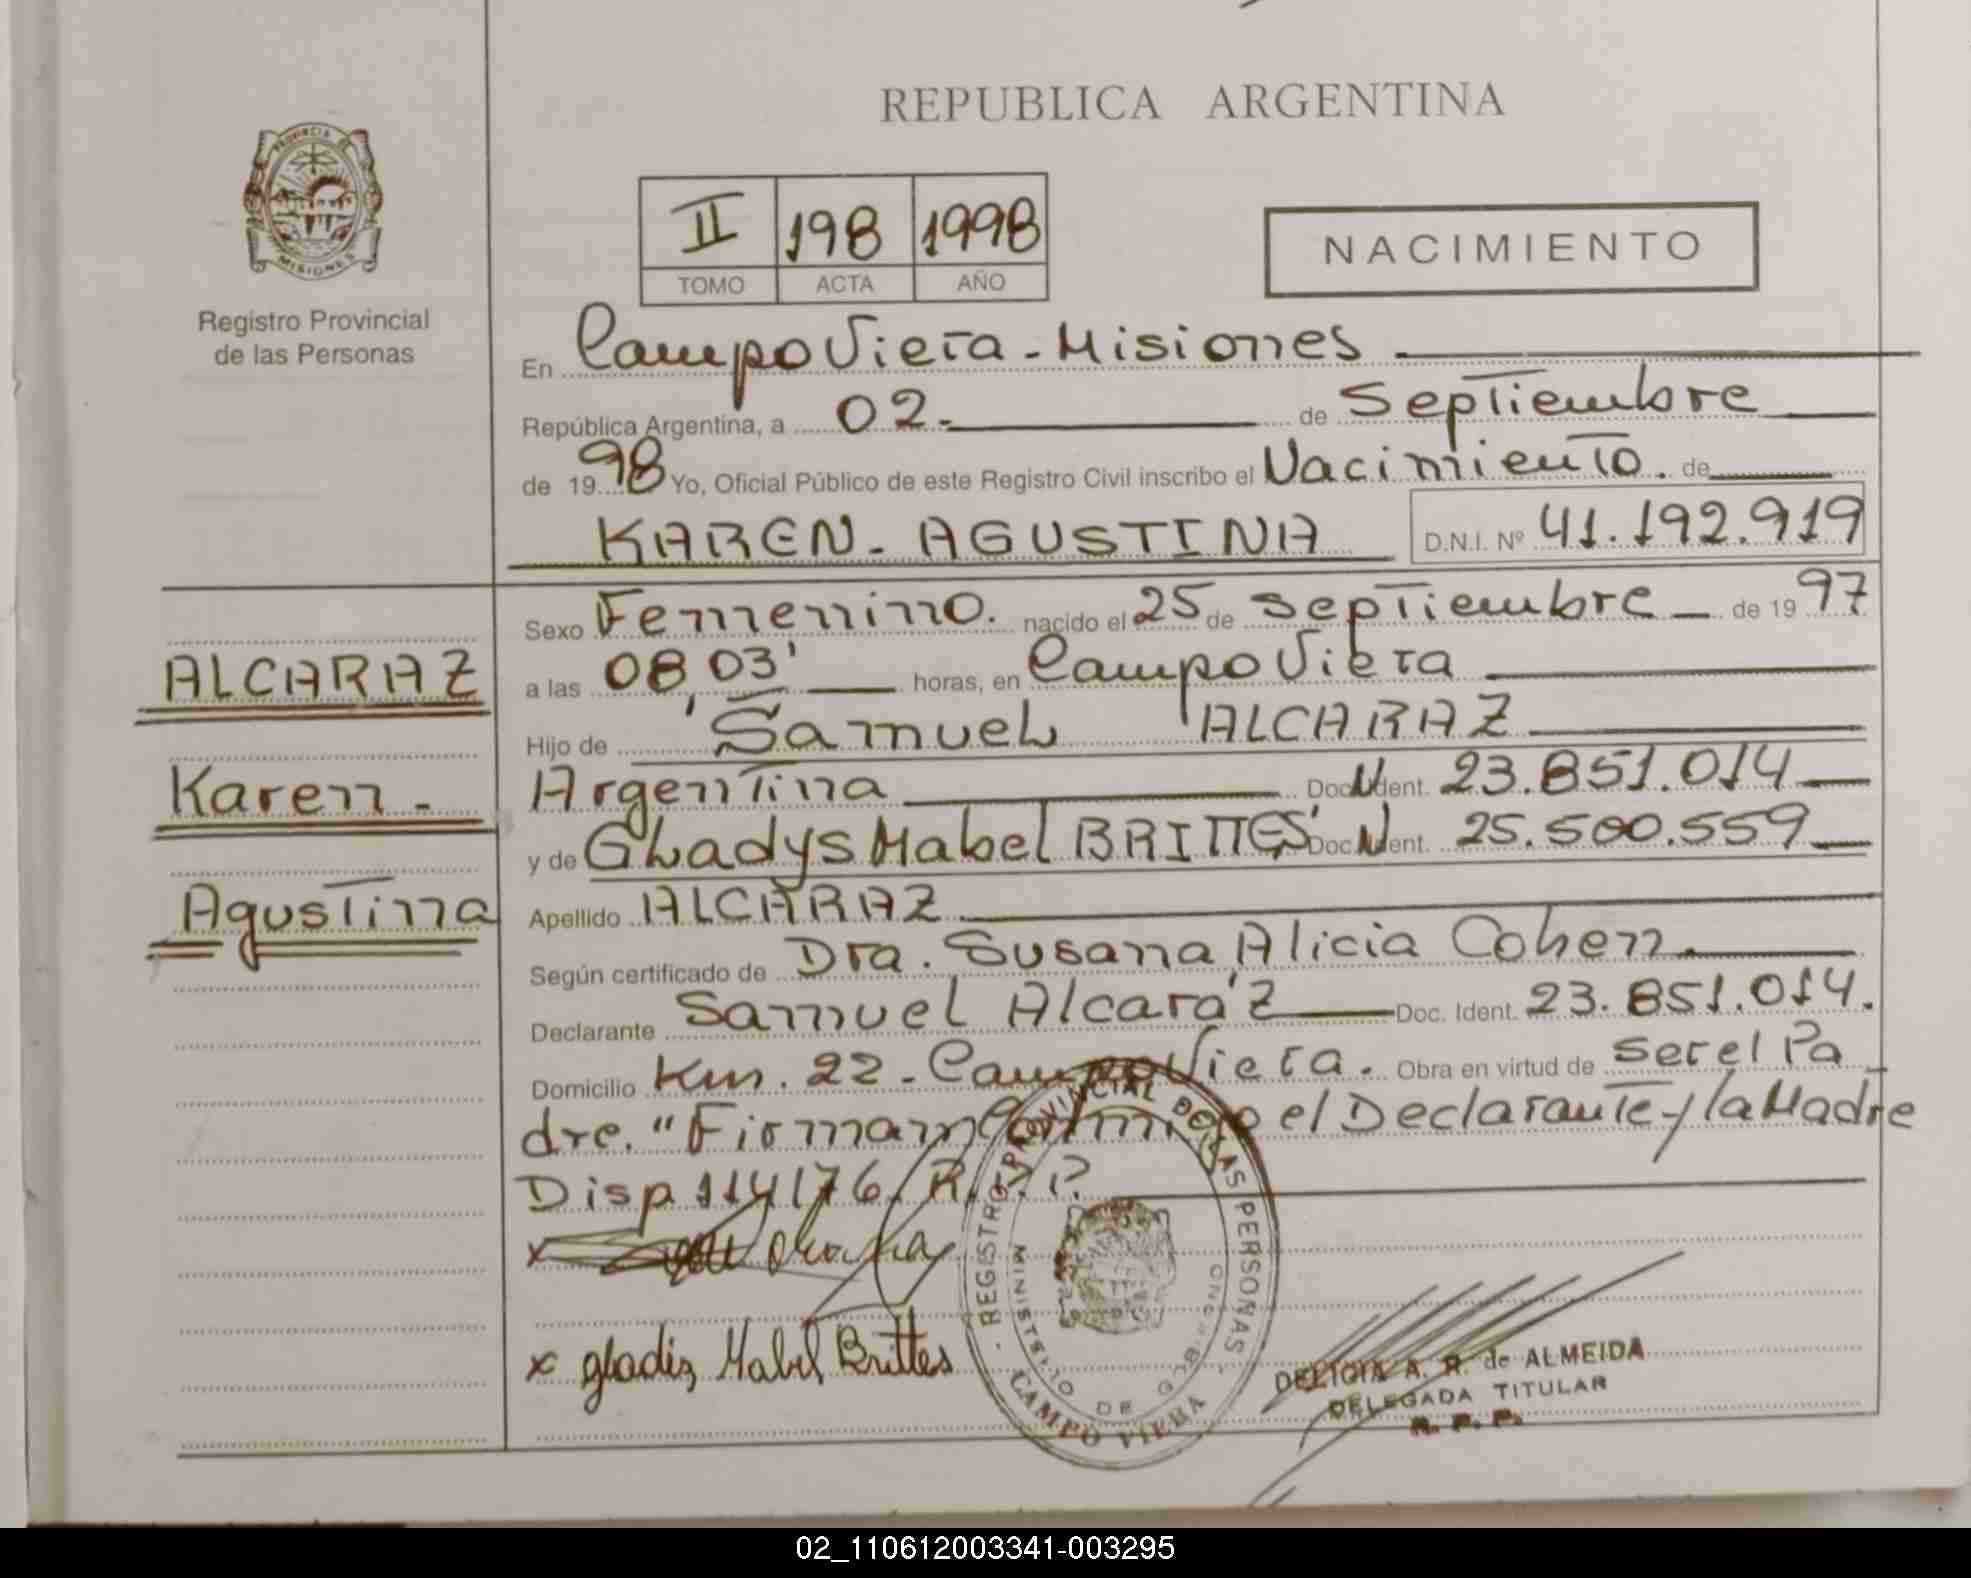 REPUBLICA ARGENTINA
PROVINCIA DE MISIONES
Registro Provincial
de las Personas
II 198 1998
TOMO ACTA AÑO
NACIMIENTO
En Campo Viera - Misiones
República Argentina, a 02. de Septiembre
de 1998 Yo, Oficial Público de este Registro Civil inscribo el Nacimiento. de
KAREN - AGUSTINA D.N.I. Nº 41.192.919
Sexo Femenino. nacido el 25 de Septiembre de 1997
a las 08 03' horas, en Campo Viera
Hijo de Samuel ALCARAZ
Argentina Doc. Ident. 23.851.014
y de Gladys Mabel BRITTES Doc. Ident. 25.500.559
Apellido ALCARAZ
Según certificado de Dra. Susana Alicia Cohen
Declarante Samuel Alcaráz Doc. Ident. 23.851.014.
Domicilio Km. 22 - Campo Viera. Obra en virtud de ser el Pa
dre. "Firman conmigo el Declarante y la Madre
Disp 114/76 R.
ALCARAZ
Karen -
Agustina
x gladis Mabel Brittes
REGISTRO PROVINCIAL DE LAS PERSONAS
MINISTERIO DE GOBIERNO
CAMPO VIERA
DELICIA A. R. de ALMEIDA
DELEGADA TITULAR
R. P. P.
02_110612003341-003295